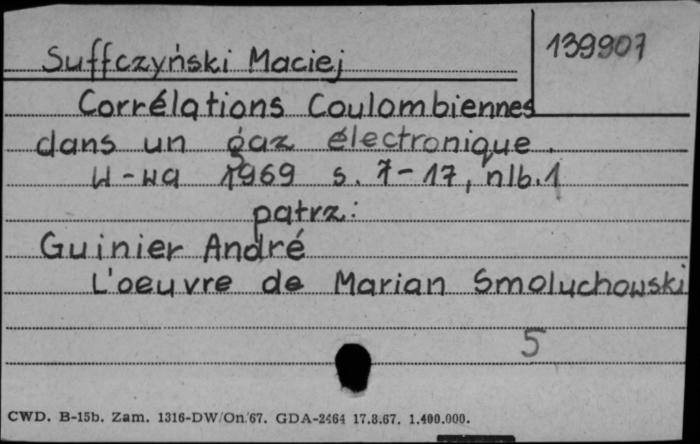 139907
Suffczyński Maciej
Corrélations Coulombiennes
dans un gaz électronique.
W-wa 1969 s. 7-17, nlb.1
patrz:
Guinier André
L'oeuvre de Marian Smoluchowski
5
CWD. B-15b. Zam. 1316-DW/On.'67. GDA-2464 17.8.67. 1.400.000.